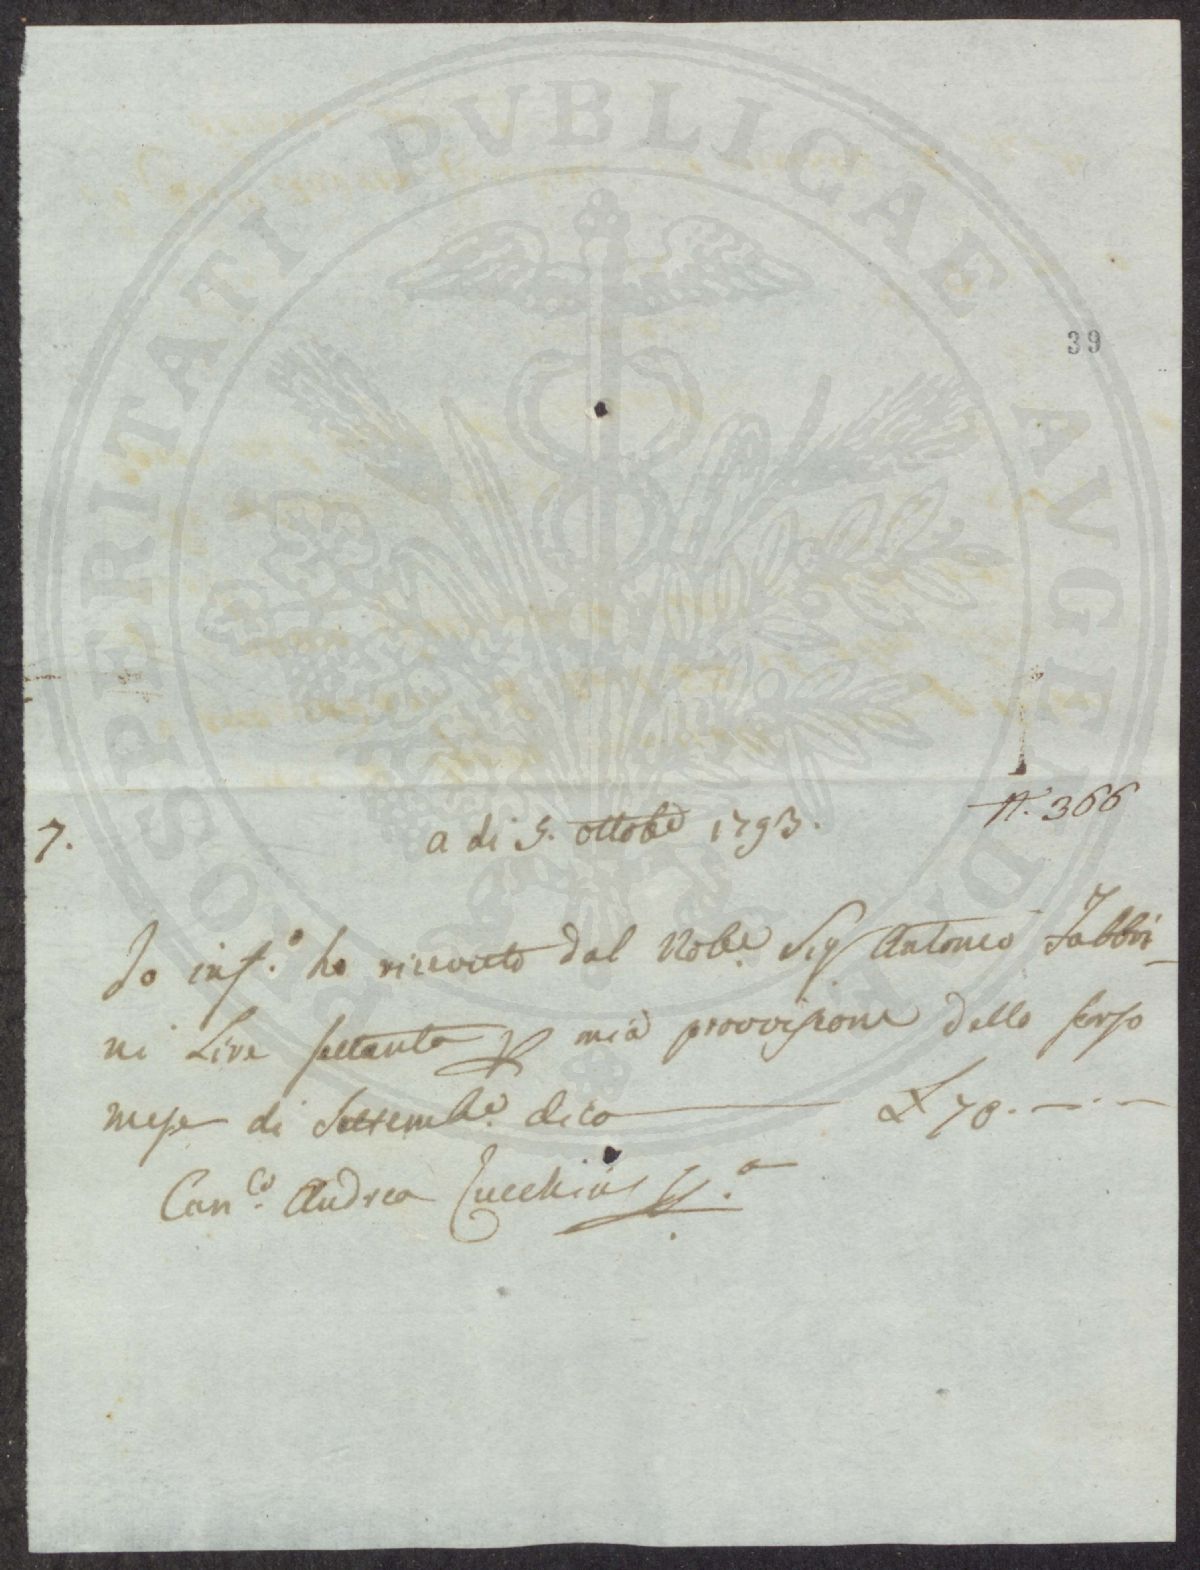 PROSPERITATI PVBLICAE AVGENDAE
39
N. 366
7.
a di 5. ottobe 1793.
Io inf.o ho ricevuto dal Nobe. Sig Antonio Fabbri-
ni Lire settanta mia provvisione dello scorso
mese di Settembe. dico £ 70.—.—
Can.co Andrea Zucchini